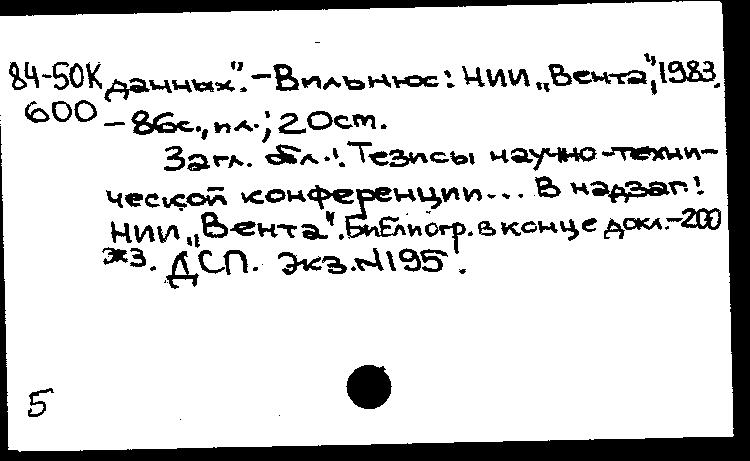 84-50К данных". – Вильнюс: НИИ „Вента", 1983.
600 – 86с., ил.; 20см.
Загл. обл.: Тезисы научно-техни-
ческой конференции... В надзаг.:
НИИ „Вента". Библиогр. в конце докл. – 200
экз. ДСП. Экз. N195.
5